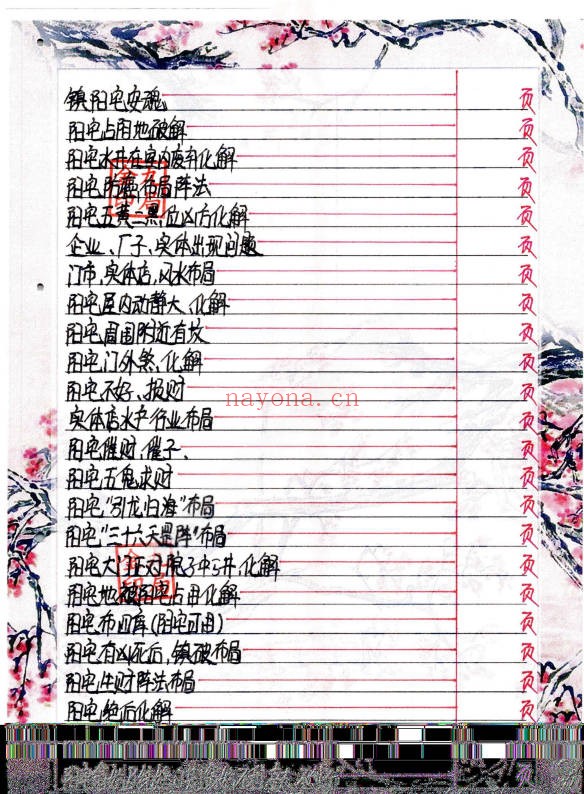 镇阳宅安魂 页
阳宅占阴地破解 页
阳宅水井在室内废弃化解 页
阳宅防 布局阵法 页
阳宅五黄二黑位凶方化解 页
企业、厂子、实体出现问题 页
门市,实体店,风水布局 页
阳宅屋内动静大,化解 页
阳宅周围附近有坟 页
阳宅,门外煞,化解 页
阳宅不好、损财 页
nayona.cn
实体店水产行业布局 页
阳宅催财,催子、 页
阳宅五鬼求财 页
阳宅"引龙归海"布局 页
阳宅"三十六天罡阵"布局 页
阳宅大门正对 化解 页
阴宅地被阳宅占用化解 页
阳宅布四库(阴宅可用) 页
阳宅有凶死后,镇破布局 页
阳宅生财阵法布局 页
阳宅,绝后化解 页
页